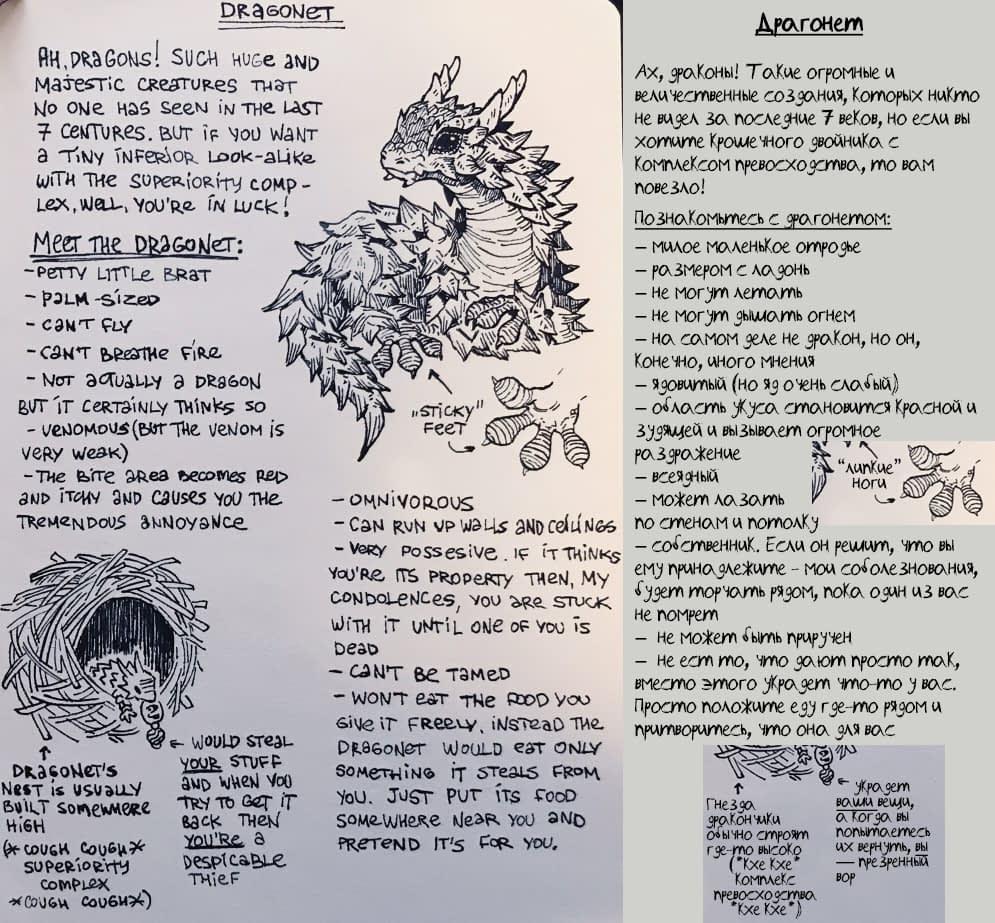 DRAGONET
AH, DRAGONS! SUCH HUGE AND
MAJESTIC CREATURES THAT
NO ONE HAS SEEN IN THE LAST
7 CENTURES. BUT IF YOU WANT
A TINY INFERIOR LOOK-ALIKE
WITH THE SUPERIORITY COMP-
LEX, WELL, YOU'RE IN LUCK!
MEET THE DRAGONET:
- PETTY LITTLE BRAT
- PALM-SIZED
- CAN'T FLY
- CAN'T BREATHE FIRE
- NOT ACTUALLY A DRAGON
BUT IT CERTAINLY THINKS SO
- VENOMOUS (BUT THE VENOM IS
VERY WEAK)
- THE BITE AREA BECOMES RED
AND ITCHY AND CAUSES YOU THE
TREMENDOUS ANNOYANCE
„STICKY"
FEET
- OMNIVOROUS
- CAN RUN UP WALLS AND CEILINGS
- VERY POSSESIVE. IF IT THINKS
YOU'RE ITS PROPERTY THEN, MY
CONDOLENCES, YOU ARE STUCK
WITH IT UNTIL ONE OF YOU IS
DEAD
- CAN'T BE TAMED
- WON'T EAT THE FOOD YOU
GIVE IT FREELY, INSTEAD THE
DRAGONET WOULD EAT ONLY
SOMETHING IT STEALS FROM
YOU. JUST PUT ITS FOOD
SOMEWHERE NEAR YOU AND
PRETEND IT'S FOR YOU.
DRAGONET'S
NEST IS USUALLY
BUILT SOMEWHERE
HIGH
(* COUGH COUGH*
SUPERIORITY
COMPLEX
*COUGH COUGH*)
WOULD STEAL
YOUR STUFF
AND WHEN YOU
TRY TO GET IT
BACK THEN
YOU'RE A
DESPICABLE
THIEF
Драгонет
Ах, драконы! Такие огромные и
величественные создания, которых никто
не видел за последние 7 веков, но если вы
хотите крошечного двойника с
комплексом превосходства, то вам
повезло!
Познакомьтесь с драгонетом:
– милое маленькое отродье
– размером с ладонь
– не могут летать
– не могут дышать огнем
– на самом деле не дракон, но он,
конечно, иного мнения
– ядовитый (но яд очень слабый)
– область укуса становится красной и
зудящей и вызывает огромное
раздражение
– всеядный
– может лазать
по стенам и потолку
"липкие"
ноги
– собственник. Если он решит, что вы
ему принадлежите – мои соболезнования,
будет торчать рядом, пока один из вас
не помрет
– не может быть приручен
– не ест то, что дают просто так,
вместо этого украдет что-то у вас.
Просто положите еду где-то рядом и
притворитесь, что она для вас
Гнезда
дракончики
обычно строят
где-то высоко
(*кхе кхе*
комплекс
превосходства
*кхе кхе*)
Украдет
ваши вещи,
а когда вы
попытаетесь
их вернуть, вы
– презренный
вор